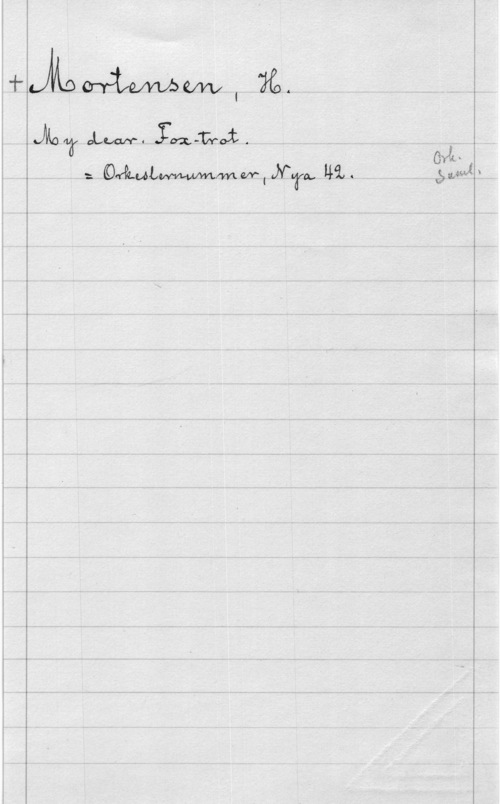 + Mortensen, H.
My dear. Fox-trot.
= Orkesternummer, Nya 42.
Ork.
Saml.